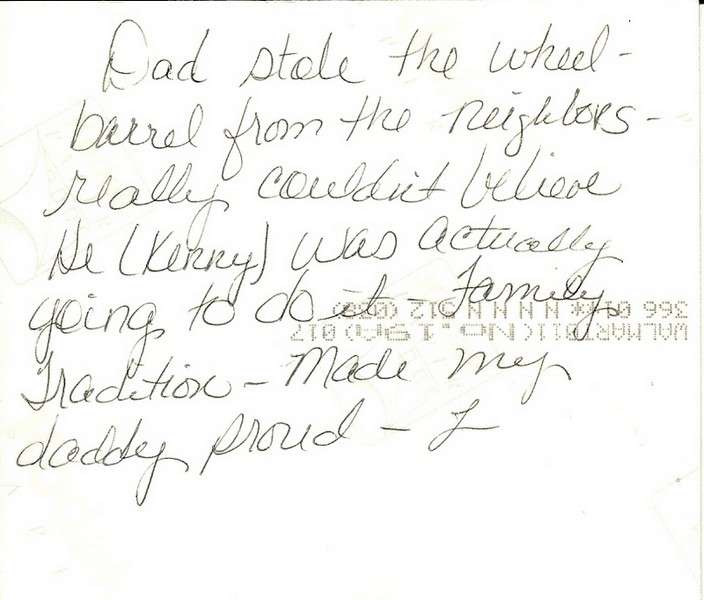 Dad stole the wheel-
barrel from the neighbors -
really couldn't believe
He (Kenny) was actually
going to do it - Family
Tradition - Made my
daddy proud - L
366 01** N N N N N 012 (026)
WALMART 011(No.19A) 017